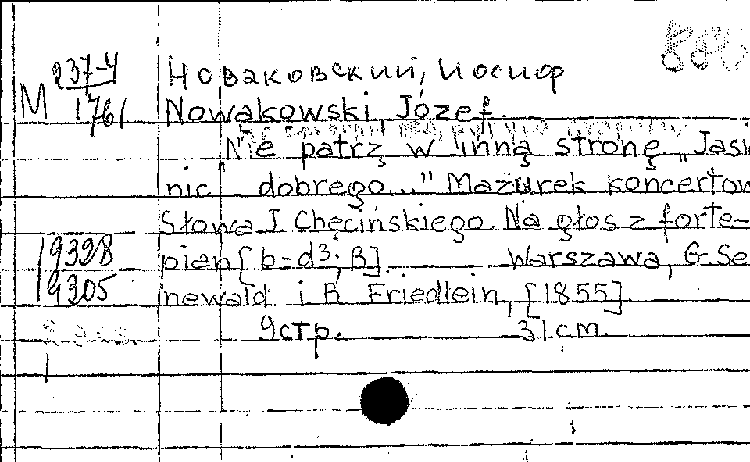 880
М 237-4
1761
Новаковский, Иосиф
Nowakowski, Józef
Nie patrz w inną stronę „Jaśk
nic dobrego..." Mazurek koncertow
Słowa J. Chęcińskiego. Na głos z forte-
pian [b-d³; B] Warszawa, G. Se
newald i R. Friedlein, [1855]
9 стр. 31 cm.
19328
19305